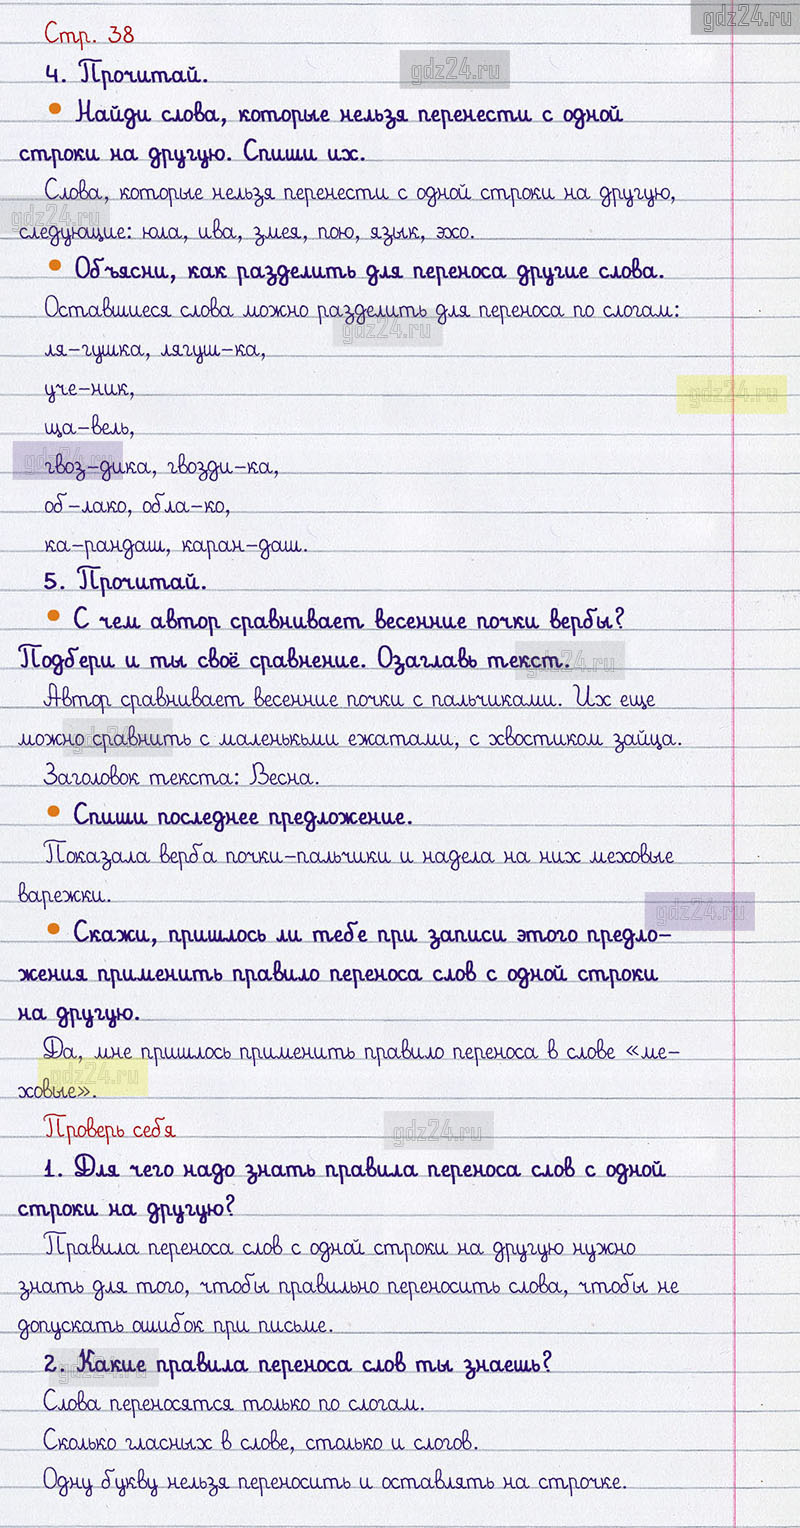 gdz24.ru
Стр. 38
4. Прочитай.
gdz24.ru
• Найди слова, которые нельзя перенести с одной
строки на другую. Спиши их.
Слова, которые нельзя перенести с одной строки на другую,
gdz24.ru
следующие: юла, ива, змея, пою, язык, эхо.
• Объясни, как разделить для переноса другие слова.
Оставшиеся слова можно разделить для переноса по слогам:
gdz24.ru
ля-гушка, лягуш-ка,
уче-ник,
gdz24.ru
ща-вель,
gdz24.ru
гвоз-дика, гвозди-ка,
об-лако, обла-ко,
ка-рандаш, каран-даш.
5. Прочитай.
• С чем автор сравнивает весенние почки вербы?
Подбери и ты своё сравнение. Озаглавь текст.
gdz24.ru
Автор сравнивает весенние почки с пальчиками. Их еще
gdz24.ru
можно сравнить с маленькьми ежатами, с хвостиком зайца.
Заголовок текста: Весна.
• Спиши последнее предложение.
Показала верба почки-пальчики и надела на них меховые
варежки.
gdz24.ru
• Скажи, пришлось ли тебе при записи этого предло-
жения применить правило переноса слов с одной строки
на другую.
Да, мне пришлось применить правило переноса в слове «ме-
gdz24.ru
ховые».
Проверь себя
gdz24.ru
1. Для чего надо знать правила переноса слов с одной
строки на другую?
Правила переноса слов с одной строки на другую нужно
знать для того, чтобы правильно переносить слова, чтобы не
допускать ошибок при письме.
2. Какие правила переноса слов ты знаешь?
gdz24.ru
Слова переносятся только по слогам.
Сколько гласных в слове, столько и слогов.
Одну букву нельзя переносить и оставлять на строчке.